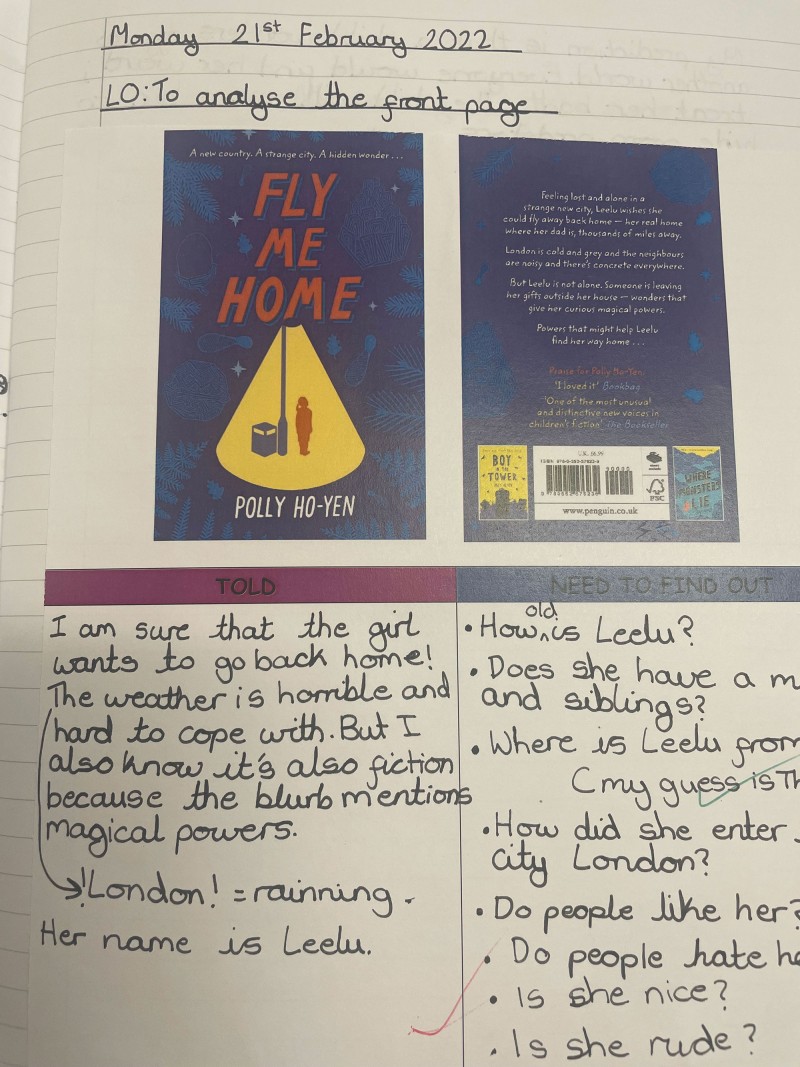 Monday 21st February 2022
LO: To analyse the front page
A new country. A strange city. A hidden wonder...
FLY
ME
HOME
POLLY HO-YEN
Feeling lost and alone in a
strange new city, Leelu wishes she
could fly away back home – her real home
where her dad is, thousands of miles away.
London is cold and grey and the neighbours
are noisy and there's concrete everywhere.
But Leelu is not alone. Someone is leaving
her gifts outside her house – wonders that
give her curious magical powers.
Powers that might help Leelu
find her way home...
Praise for Polly Ho-Yen
'I loved it' Bookbag
'One of the most unusual
and distinctive new voices in
children's fiction' The Bookseller
BOY
IN THE
TOWER
U.K. £6.99
www.penguin.co.uk
FSC
WHERE
MONSTERS
LIE
TOLD
I am sure that the girl
wants to go back home!
The weather is horrible and
hard to cope with. But I
also know it's also fiction
because the blurb mentions
magical powers.
!London! = rainning.
Her name is Leelu.
NEED TO FIND OUT
• How old is Leelu?
• Does she have a m
and siblings?
• Where is Leelu from
(my guess is Th
• How did she enter
city London?
• Do people like her?
• Do people hate he
• Is she nice?
• Is she rude?